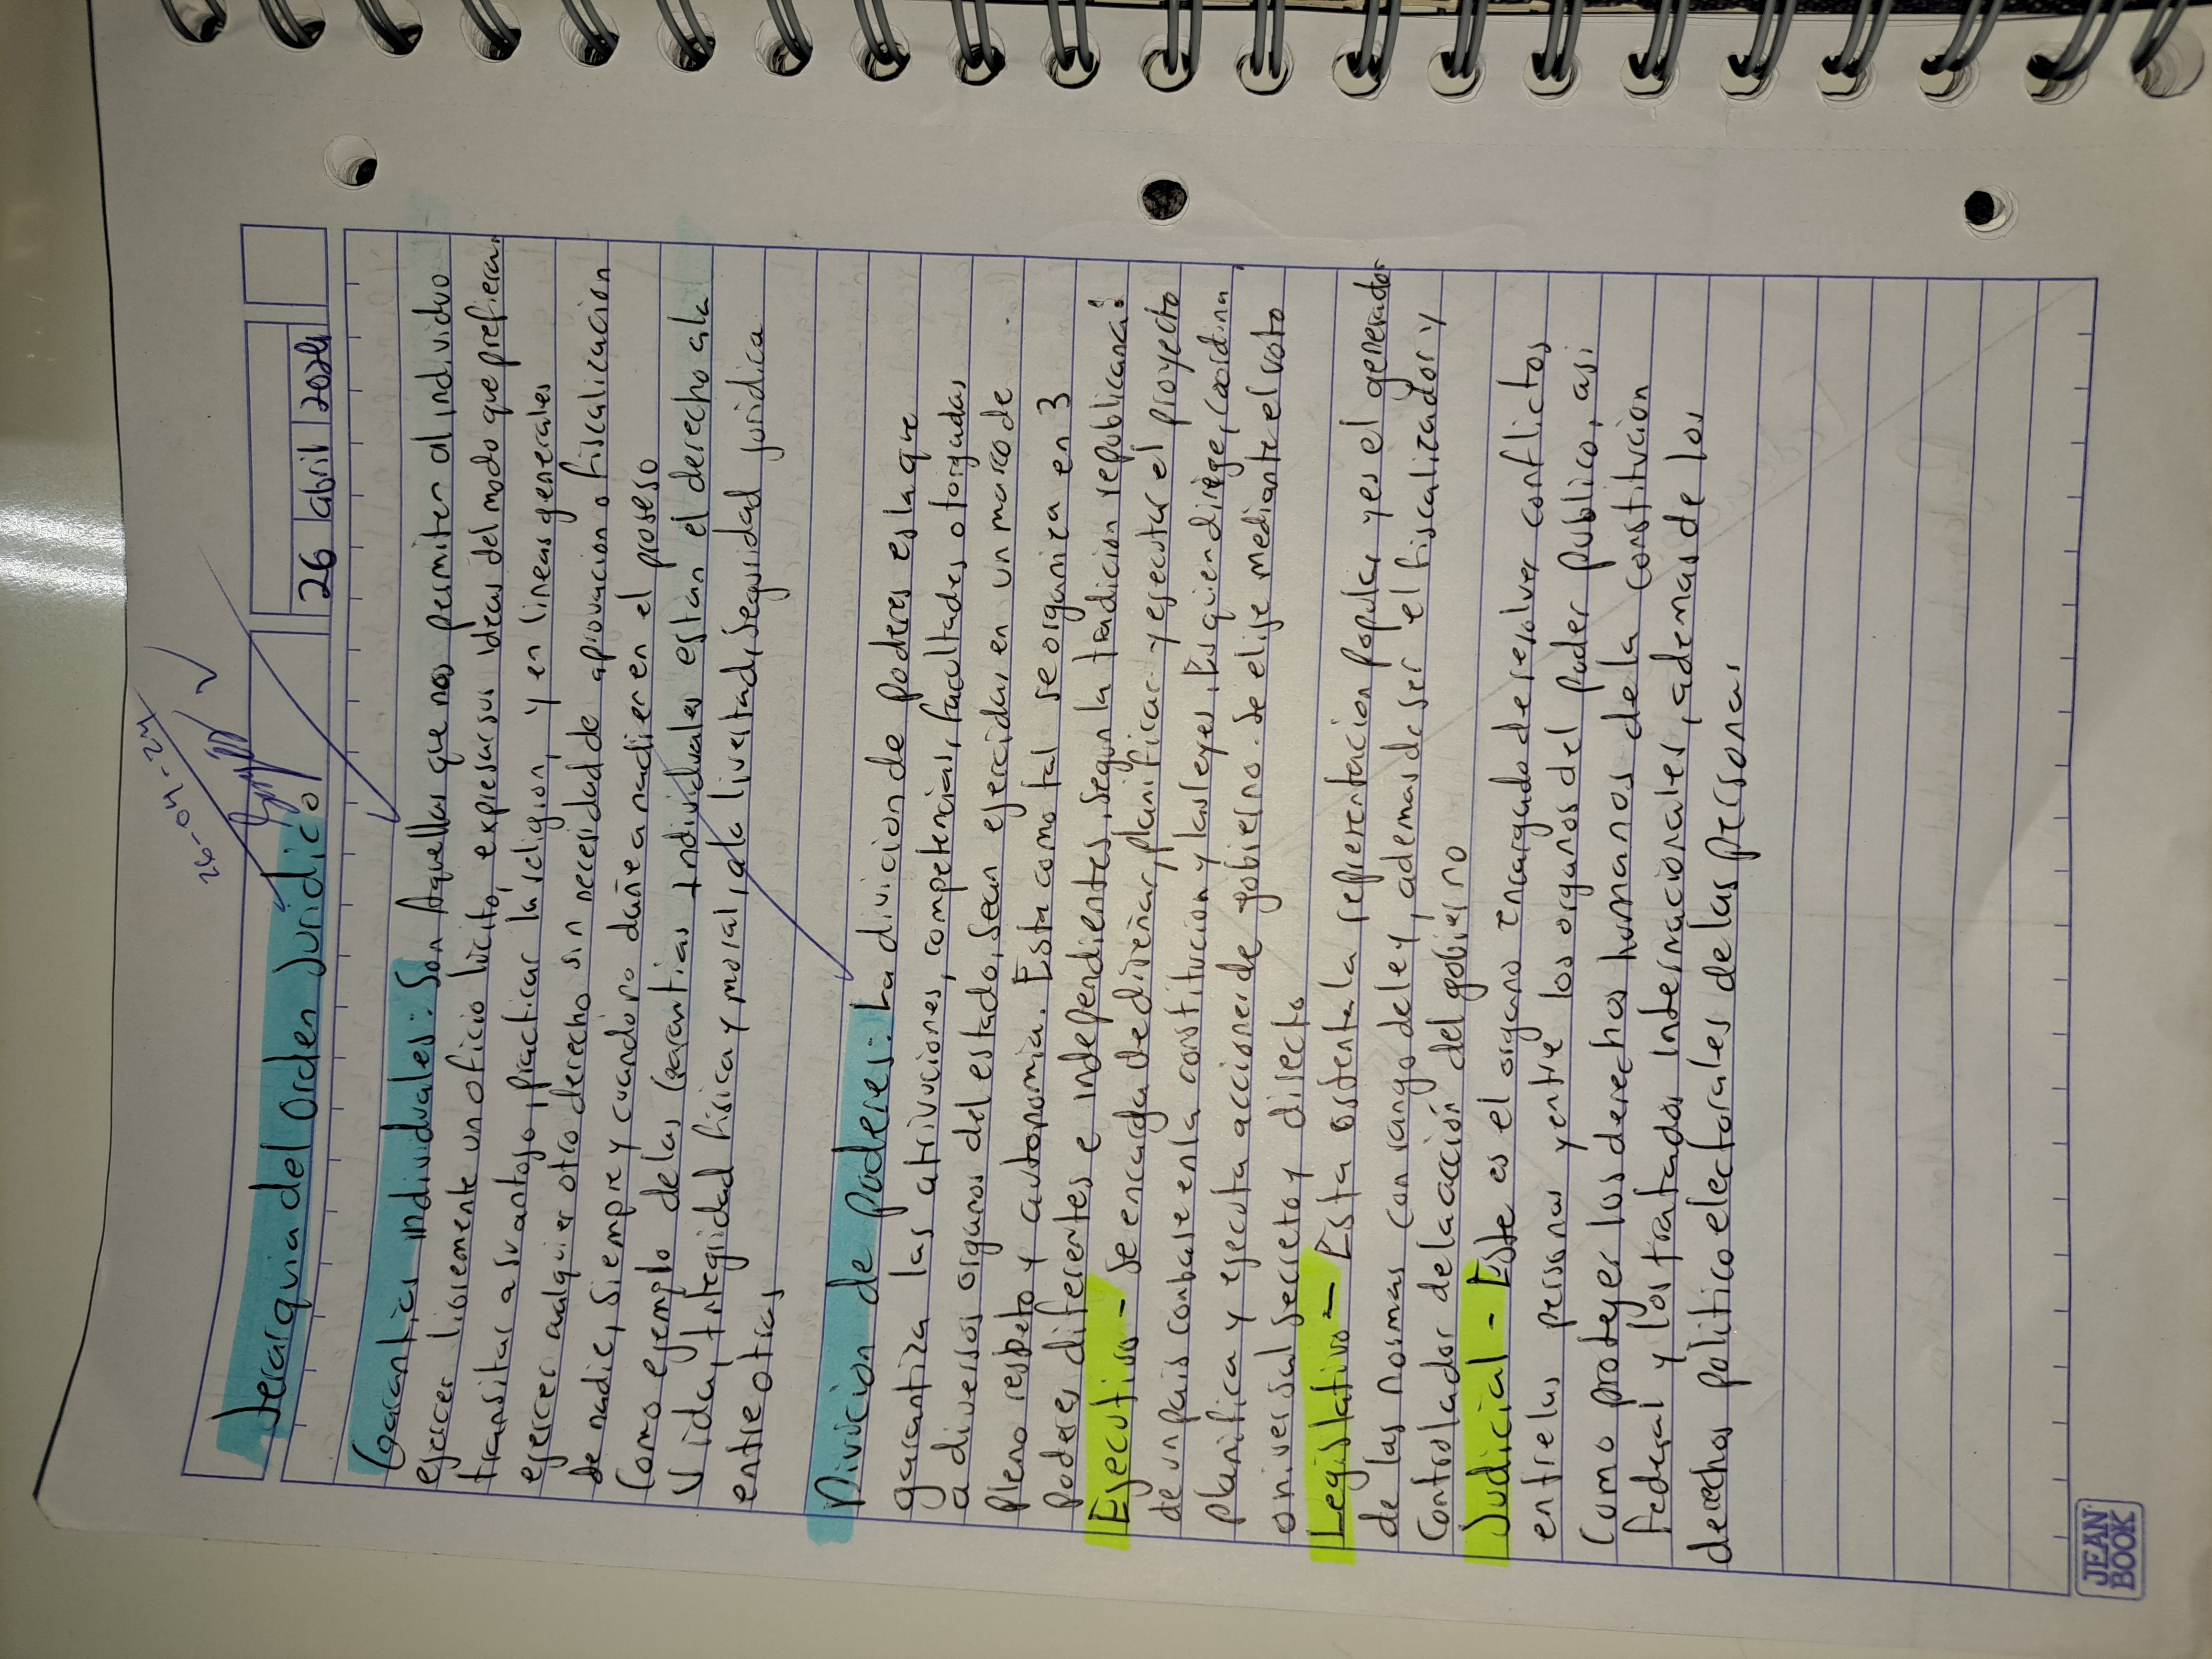 26-04-24
Jerarquia del Orden Juridico
26 abril 2024
Garantias individuales: Son Aquellas que nos permiten al individuo
ejercer libremente un oficio licito, expresar sus ideas del modo que prefiera,
transitar a su antojo, practicar la religion, y en lineas generales
ejercer cualquier otro derecho sin necesidad de aprovacion o fiscalizacion
de nadie, siempre y cuando no dañe a nadie en el proseso
Como ejemplo de las Garantias Individuales estan el derecho a la
Vida, Integridad fisica y moral, a la livertad, seguridad juridica
entre otras
Divicion de poderes: La divicion de poderes es la que
garantiza las atrivuciones, competencias, facultades otorgadas
a diversos organos del estado, sean ejercidas en un marco de
pleno respeto y autonomia. Esta como tal se organiza en 3
poderes diferentes e independientes, segun la tradicion republicana:
Ejecutivo - Se encarga de diseñar, planificar y ejecutar el proyecto
de un pais con base en la constitucion y las leyes. Es quien dirige, coordina
planifica y ejecuta acciones de gobierno. Se elije mediante el voto
universal secreto y directo
Legislativo - Esta ostenta la representacion popular, y es el generador
de las normas con rango de ley, ademas de ser el fiscalizador y
Controlador de la acción del gobierno
Judicial - Este es el organo encargado de resolver conflictos
entre las personas y entre los organos del poder publico, asi
Como proteger los derechos humanos de la constitucion
federal y los tratados internacionales, ademas de los
derechos politico electorales de las personas
JEAN BOOK